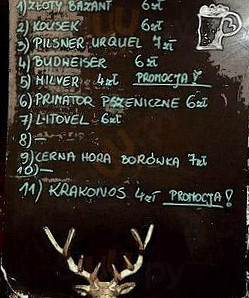 1) ZŁOTY BAŻANT 6zł
2) KOUSEK 6zł
3) PILSNER URQUEL 7zł
4) BUDWEISER 6zł
5) HILVER 4zł PROMOCJA!
6) PRIMATOR PSZENICZNE 6zł
7) LITOVEL 6zł
8) —
9) CERNA HORA BORÓWKA 7zł
10) —
11) KRAKONOS 4zł PROMOCJA!